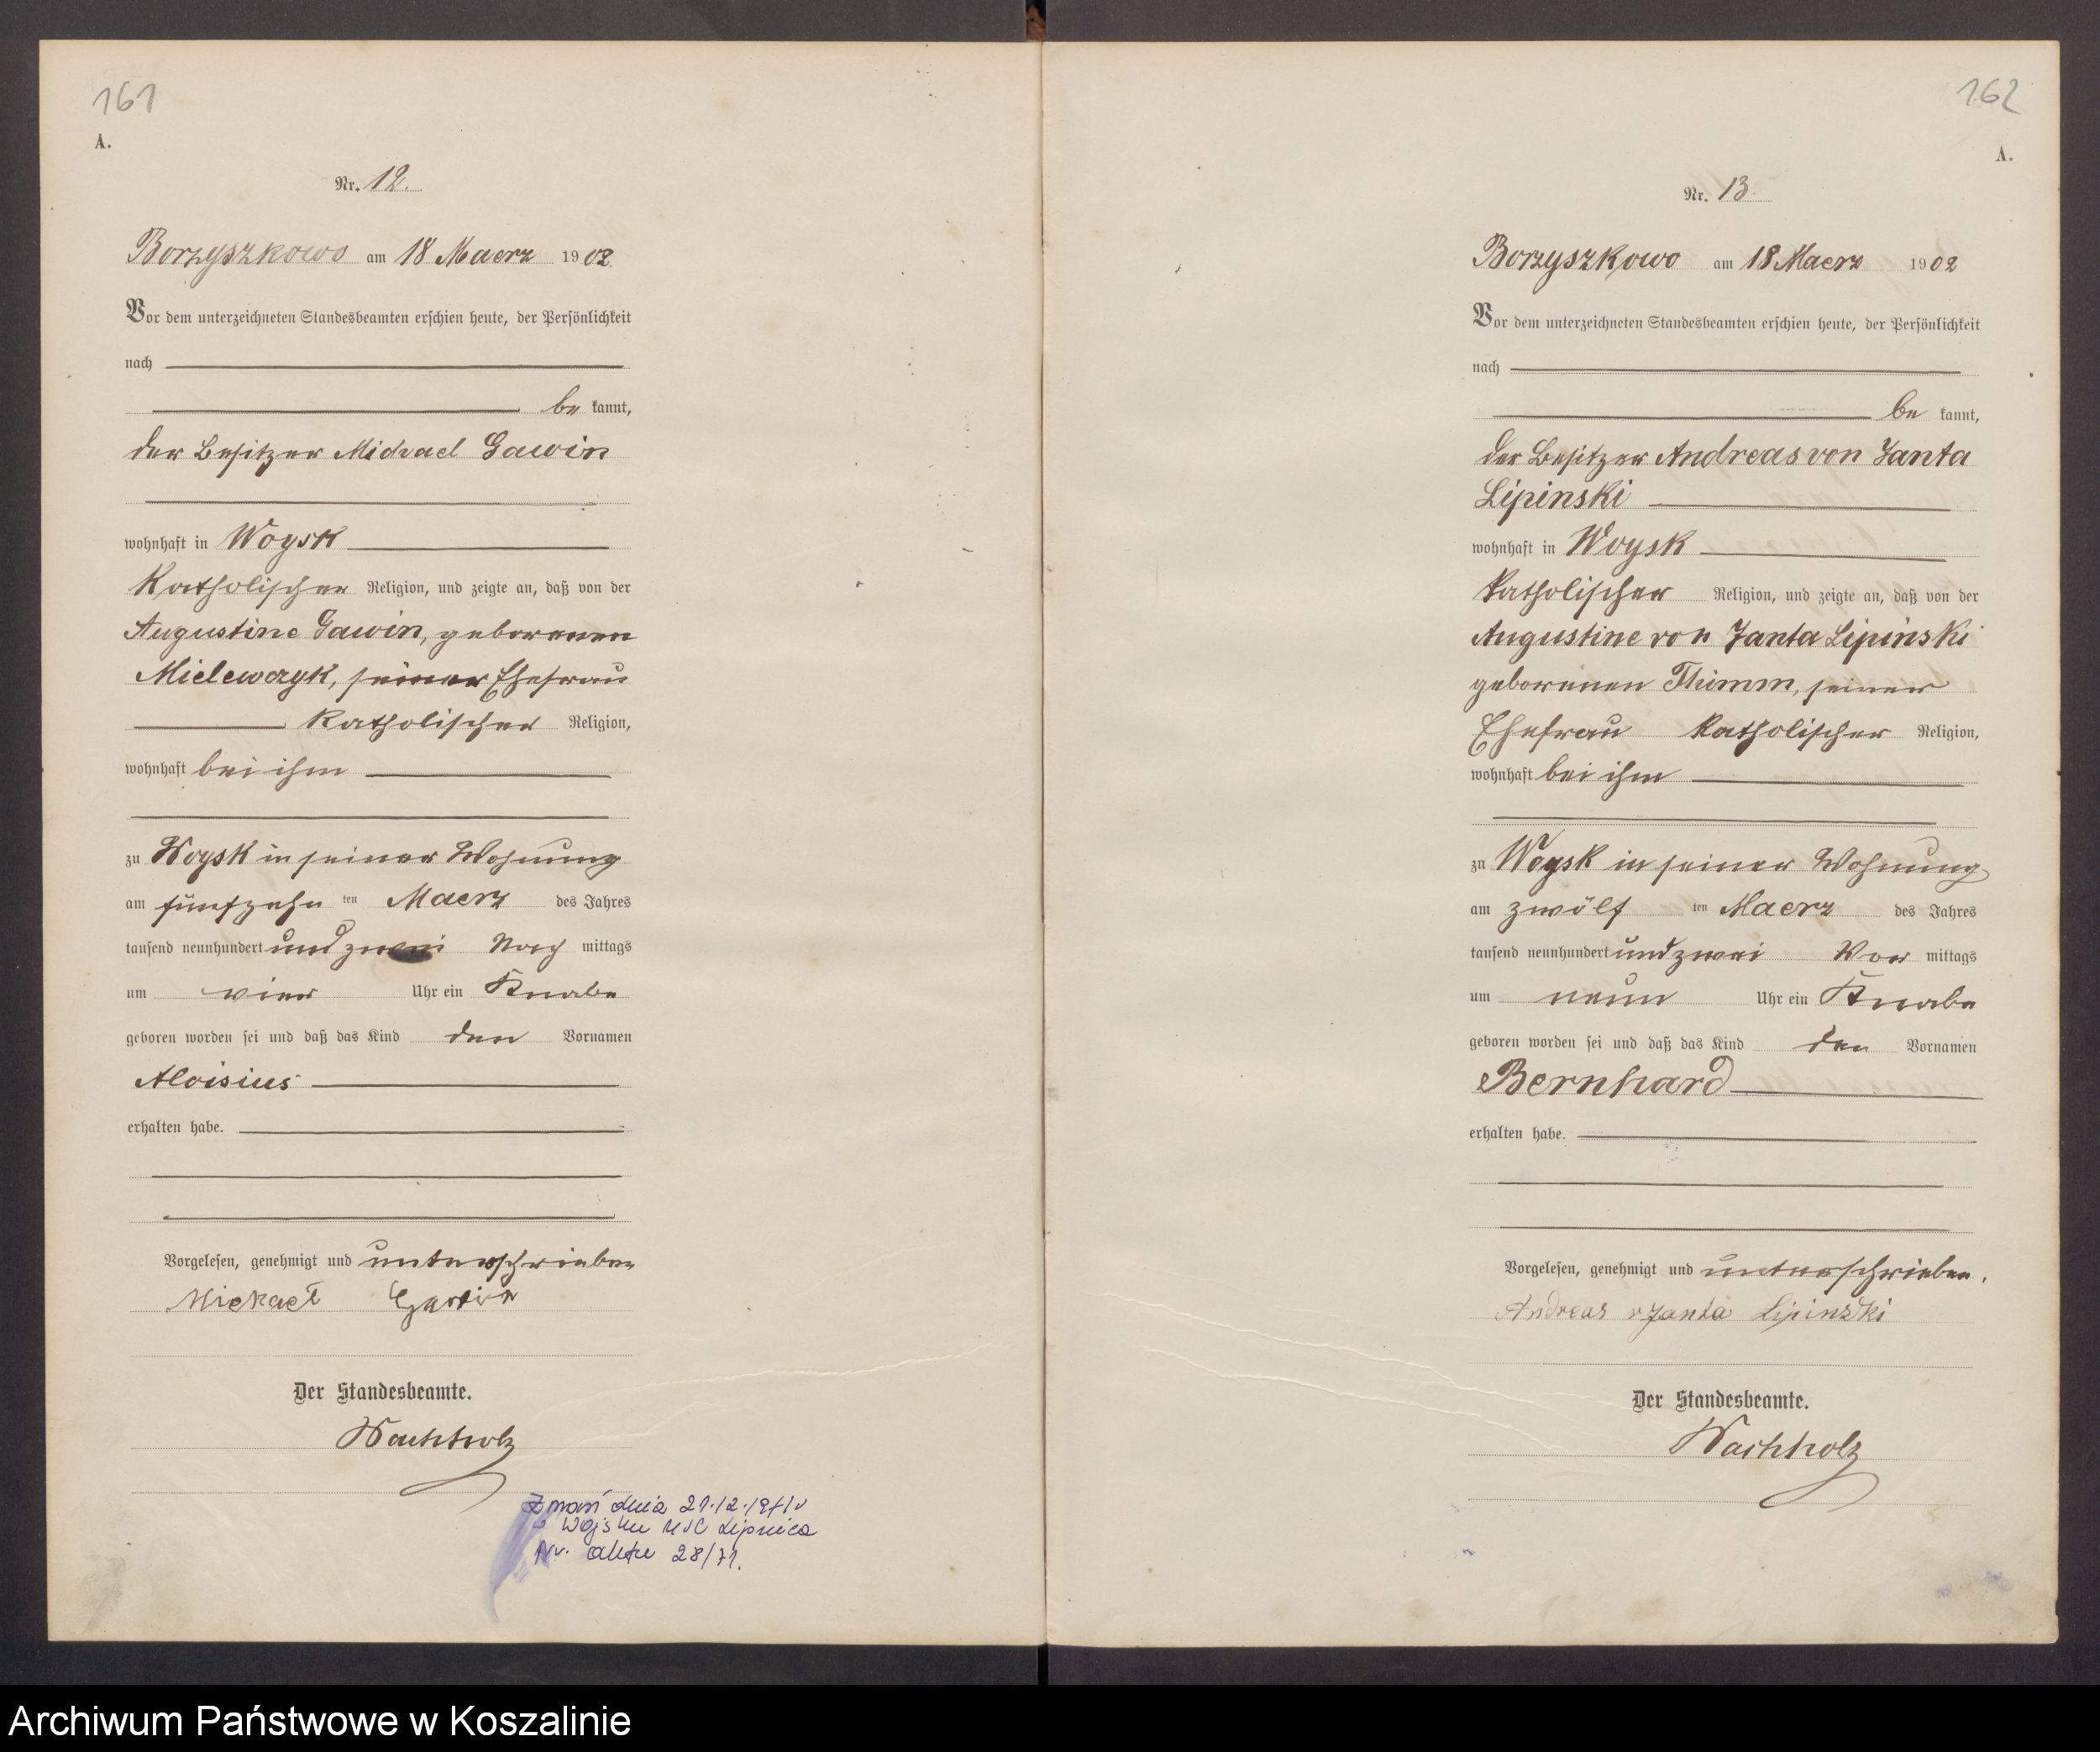 161
A.
Nr. 12.
Borzyszkowo am 18 Maerz 1902.
Vor dem unterzeichneten Standesbeamten erschien heute, der Persönlichkeit
nach
be kannt,
der Besitzer Michael Gawin
wohnhaft in Woysk
Katholischer Religion, und zeigte an, daß von der
Augustine Gawin, geborenen
Mielewczyk, seiner Ehefrau
Katholischer Religion,
wohnhaft bei ihm
zu Woysk in seiner Wohnung
am fünfzehn ten Maerz des Jahres
tausend neunhundert und zwei Nach mittags
um vier Uhr ein Knabe
geboren worden sei und daß das Kind den Vornamen
Aloisius
erhalten habe.
Vorgelesen, genehmigt und unterschrieben
Michael Gawin
Der Standesbeamte.
Wachholz
Zmarł dnia 21.12.1971 w
Wojsku USC Lipnica
Nr. aktu 28/71.
162
A.
Nr. 13.
Borzyszkowo am 18 Maerz 1902
Vor dem unterzeichneten Standesbeamten erschien heute, der Persönlichkeit
nach
be kannt,
der Besitzer Andreas von Janta
Lipinski
wohnhaft in Woysk
Katholischer Religion, und zeigte an, daß von der
Augustine von Janta Lipinski
geborenen Thimm, seiner
Ehefrau Katholischer Religion,
wohnhaft bei ihm
zu Woysk in seiner Wohnung
am zwölf ten Maerz des Jahres
tausend neunhundert und zwei Vor mittags
um neun Uhr ein Knabe
geboren worden sei und daß das Kind den Vornamen
Bernhard
erhalten habe.
Vorgelesen, genehmigt und unterschrieben.
Andreas v Janta Lipinski
Der Standesbeamte.
Wachholz
Archiwum Państwowe w Koszalinie